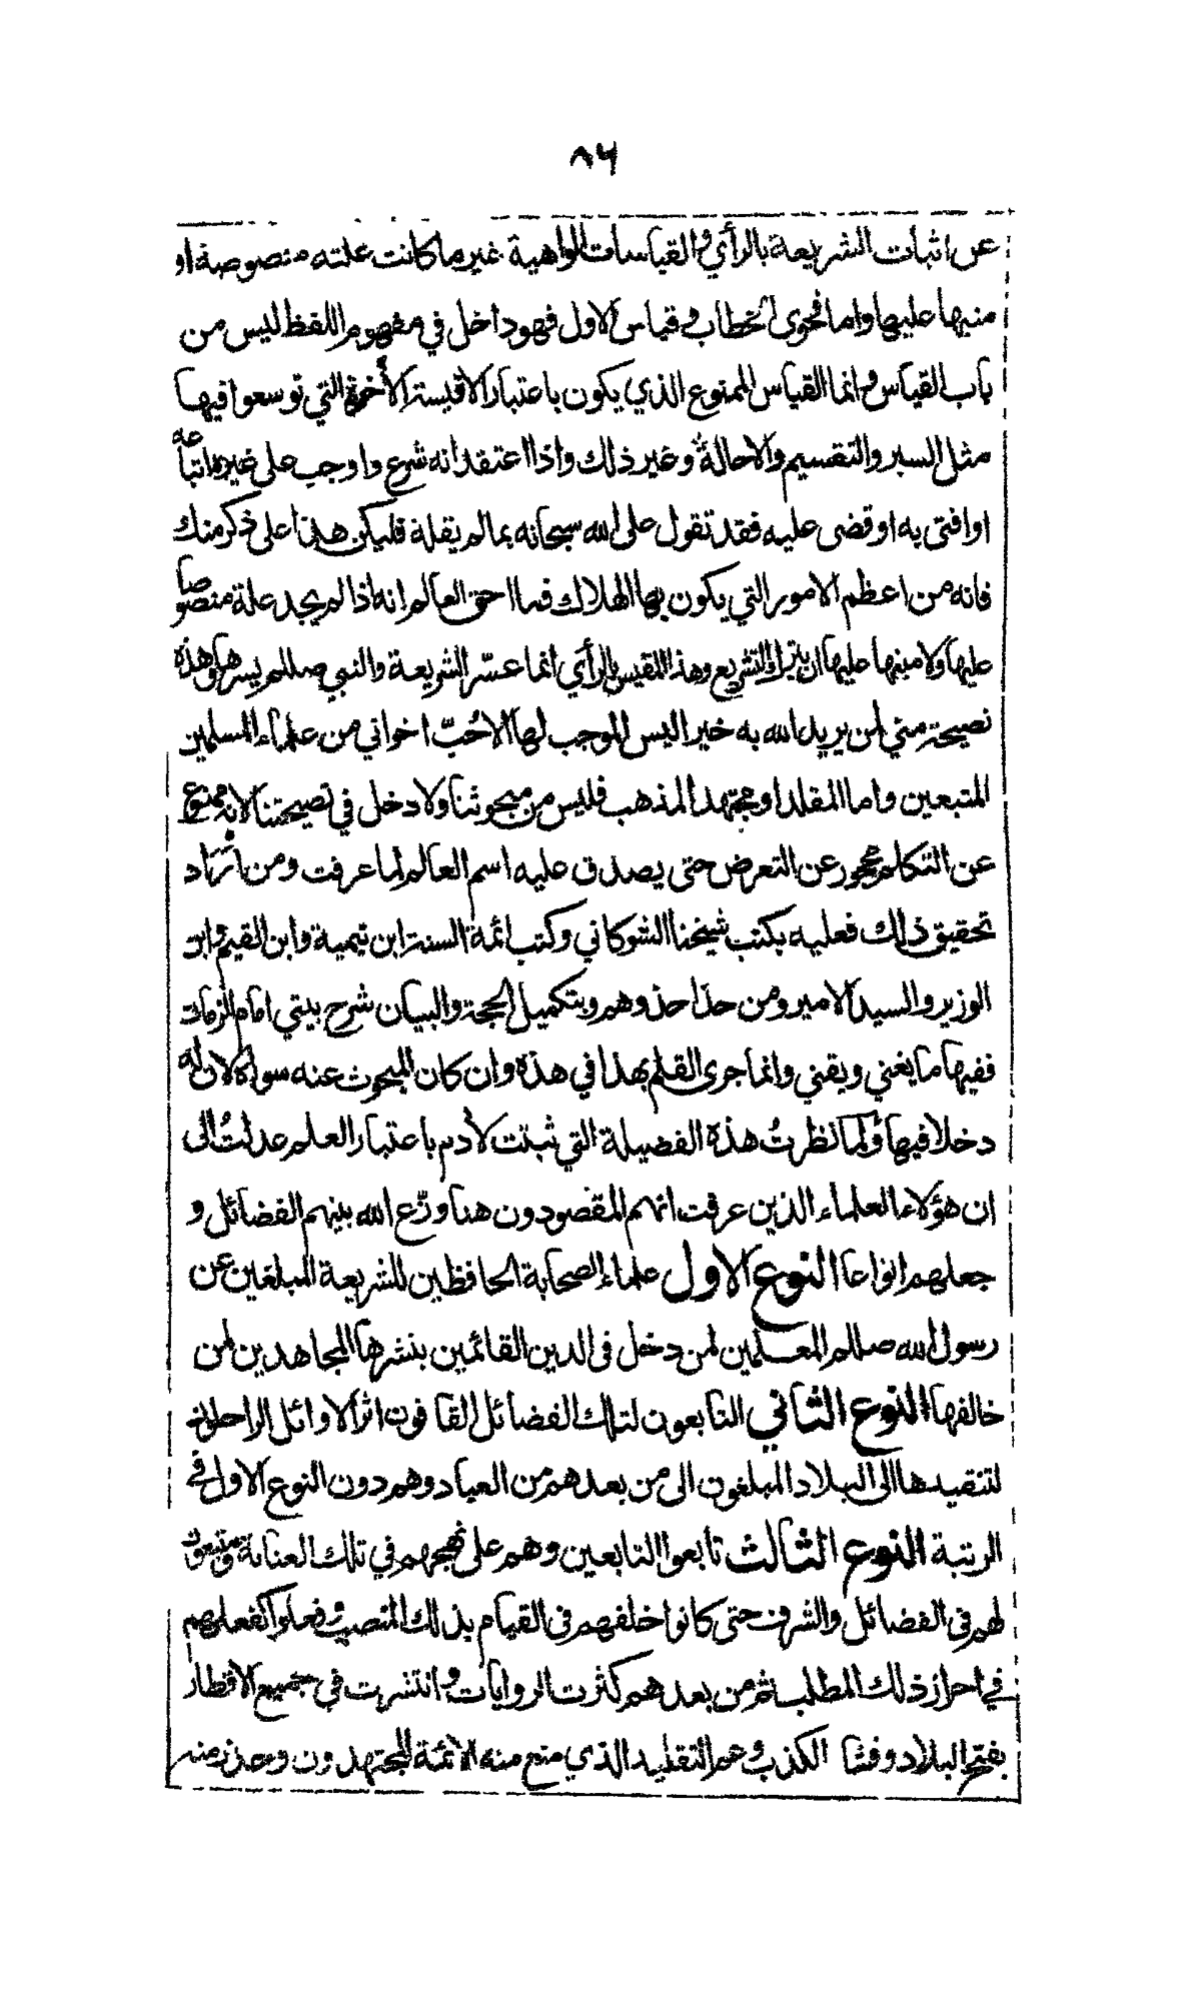 ٨٦
عن اثبات الشريعة بالرأي والقياسات الواهية غير ما كانت علته منصوصة او
منبها عليها واما فحوى الخطاب وقياس الاول فهو داخل في مفهوم اللفظ ليس من
باب القياس وانما القياس الممنوع الذي يكون باعتبار الاقيسة الأخرة التي توسعوا فيها
مثل السبر والتقسيم والاحالة وغير ذلك واذا اعتقد انه شرع واوجب على غيره اتباعه
او افتى به او قضى عليه فقد تقول على الله سبحانه بما لم يقلة فليكن هذا على ذكر منك
فانه من اعظم الامور التي يكون بها الهلاك فما احق العالم انه اذا لم يجد علة منصوصا
عليها ولا منبها عليها ان يترك التشريع وهذا القيس بالرأي انما عسّر الشريعة والنبي صللم يسرها وهذه
نصيحة مني لمن يريد الله به خيرا ليس الموجب لها الا حُبّ اخواني من علماء المسلمين
المتبعين واما المقلد او مجتهد المذهب فليس من مبحوثنا ولا دخل في نصيحتنا لانه ممنوع
عن التكلم محجور عن التعرض حتى يصدق عليه اسم العالم لما عرفت ومن اراد
تحقيق ذلك فعليه بكتب شيخنا الشوكاني وكتب ائمة السنة ابن تيمية وابن القيم وابن
الوزير والسيد الامير ومن حذا حذوهم وبتكميل الحجة والبيان شرح بيتي امام الزمان
ففيها ما يغني ويقني وانما جرى القلم بهذا في هذه وان كان المبحوث عنه سواه لان له
دخلا فيها ولما نظرتُ هذه الفضيلة التي ثبتت لأدم باعتبار العلم عدلتُ الى
ان هؤلاء العلماء الذين عرفت انهم المقصودون هنا وزّع الله بينهم الفضائل و
جعلهم انواعا النوع الاول علماء الصحابة الحافظين للشريعة المبلغين عن
رسول الله صللم المعلمين لمن دخل في الدين القائمين بنشرها المجاهدين لمن
خالفها النوع الثاني التابعون لتلك الفضائل القافون اثر الاوائل الراحلون
لتنقيدها الى البلاد المبلغون الى من بعدهم من العباد وهم دون النوع الاول في
الرتبة النوع الثالث تابعوا التابعين وهم على نهجهم في تلك العناية ومتبعون
لهم في الفضائل والشرف حتى كانوا خلفهم في القيام بذلك المنصب وفعلوا كفعلهم
في احراز ذلك المطلب ثم من بعدهم كثرت الروايات وانتشرت في جميع الاقطار
بفتح البلاد وفشا الكذب وعم التقليد الذي منع منه الائمة المجتهدون وحذر منه